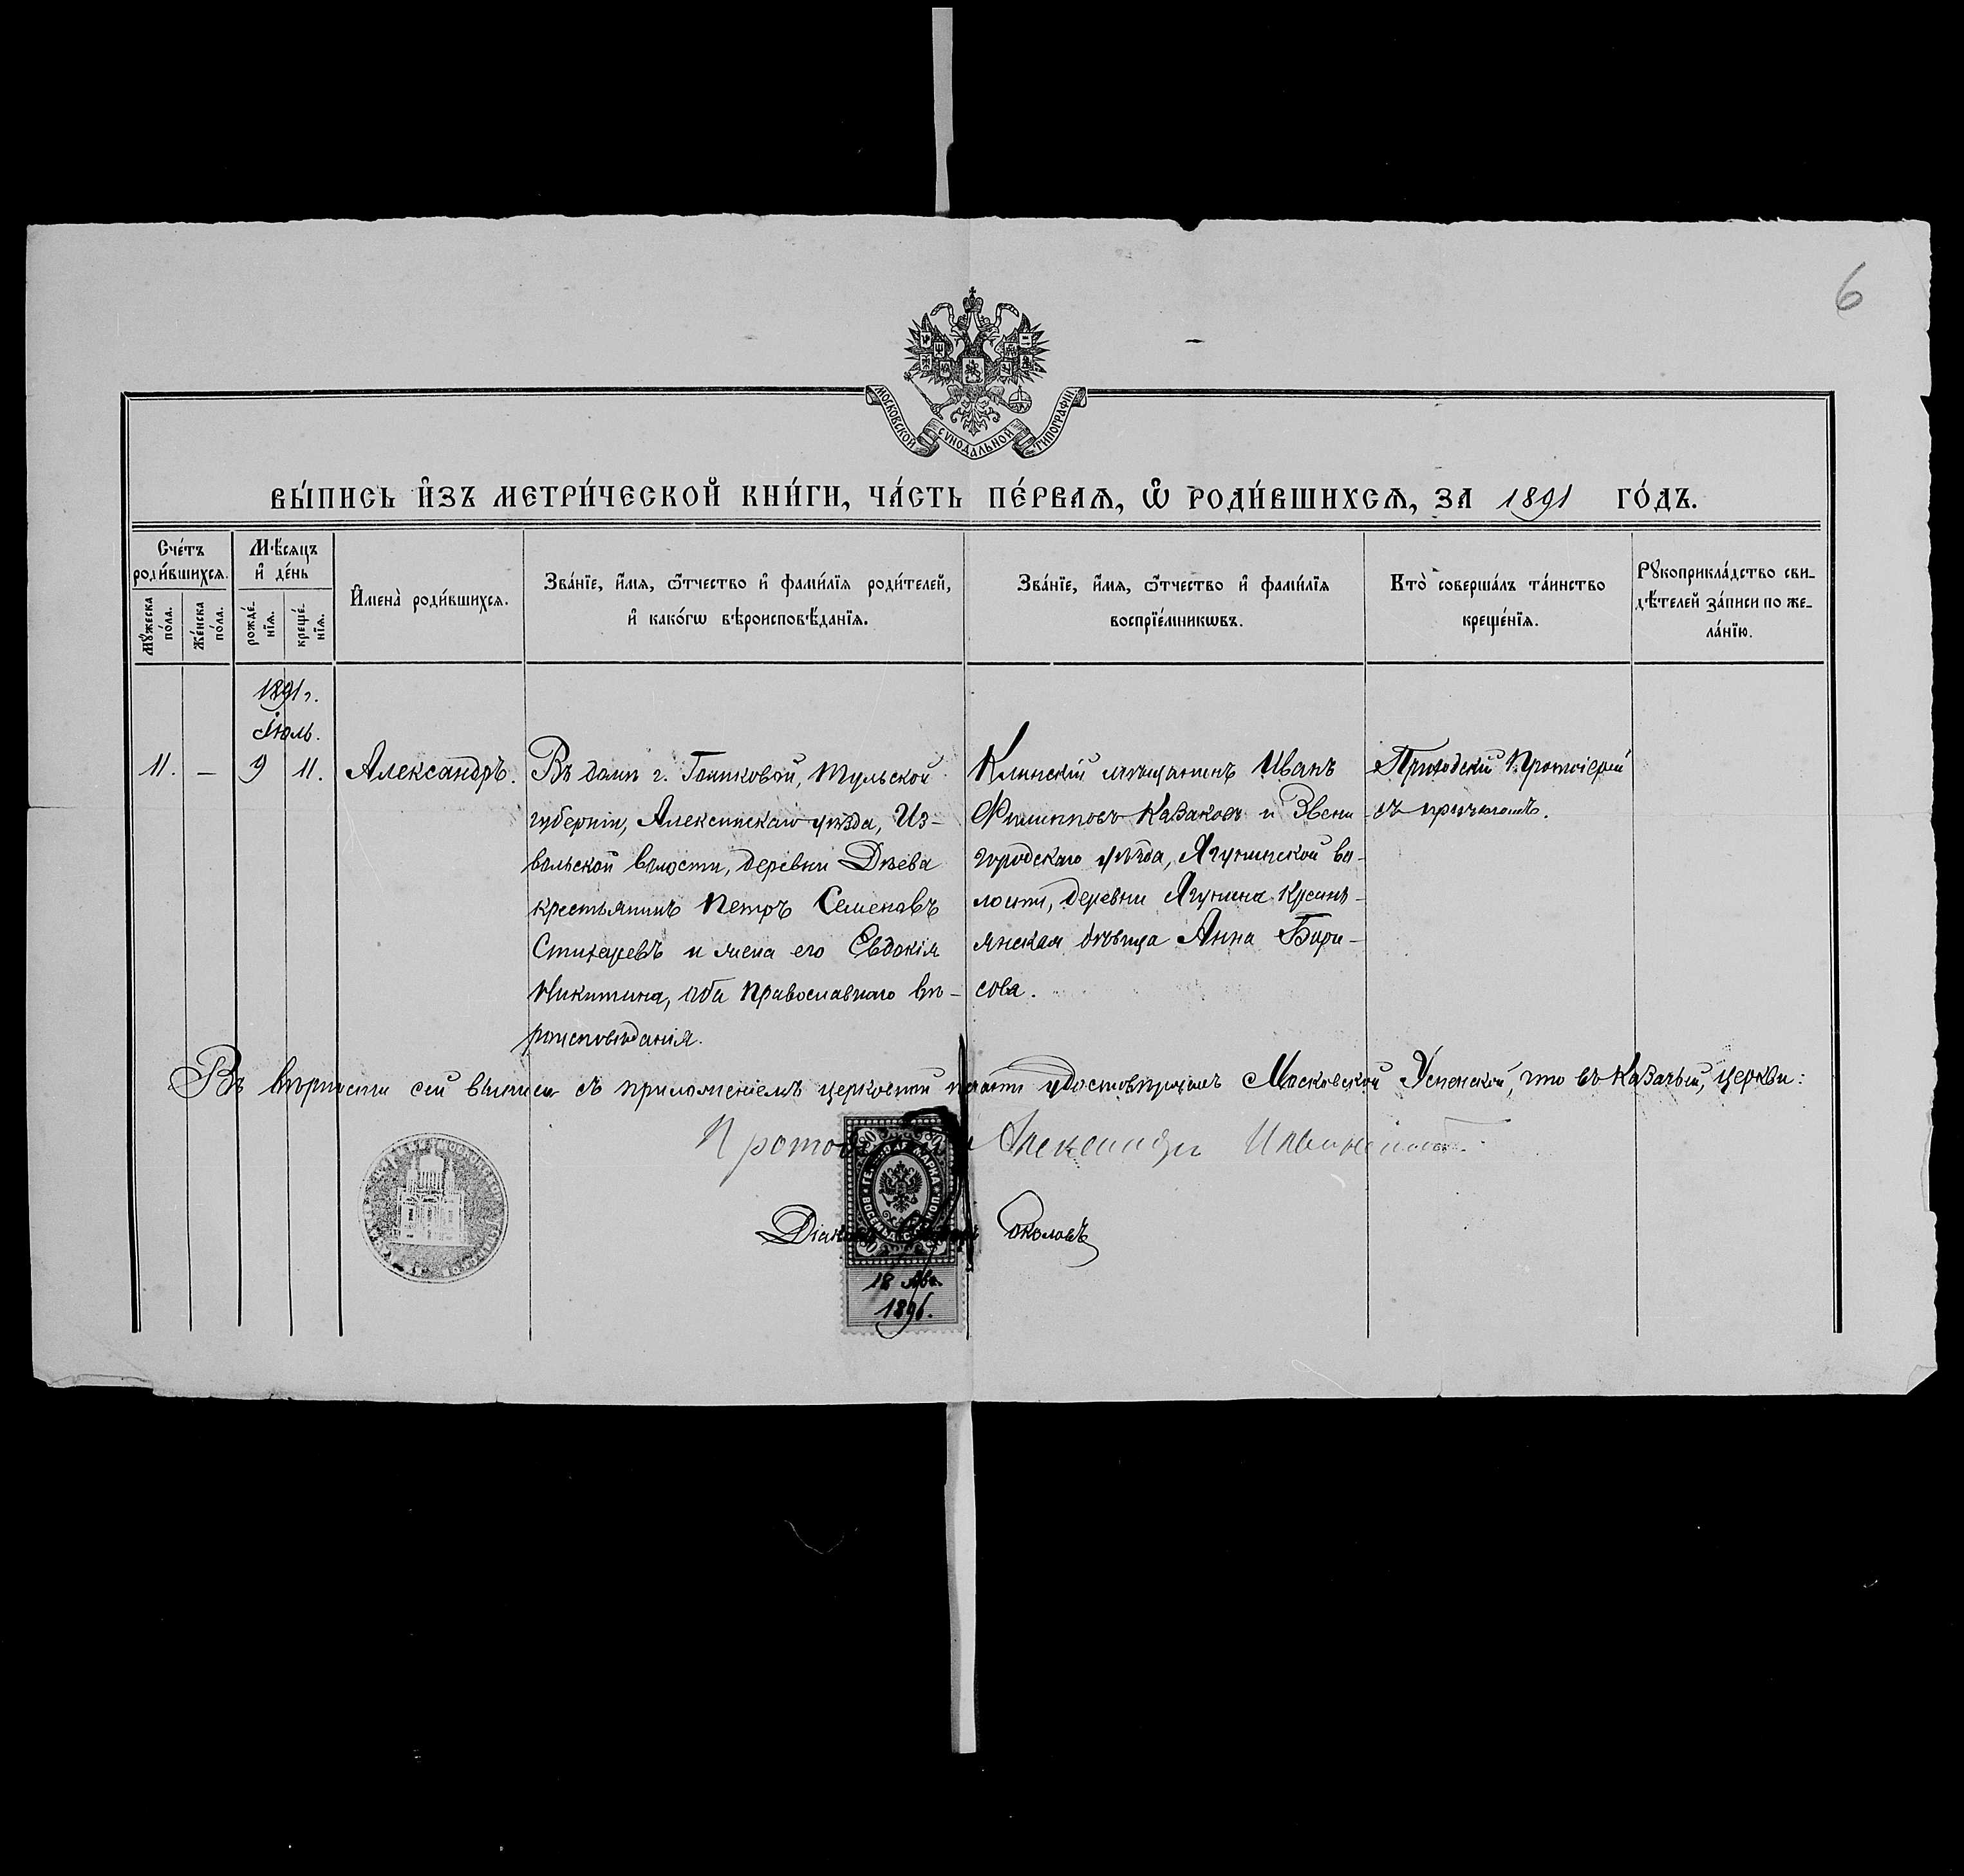 6
МОСКОВСКОЙ СѴНОДАЛЬНОЙ ТИПОГРАФІИ
ВЫ́ПИСЬ И҆ЗЪ МЕТРИ́ЧЕСКОЙ КНИ́ГИ, ЧА́СТЬ ПЕ́РВАѦ, Ѽ РОДИ́ВШИХСѦ, ЗА 1891 ГО́ДЪ.
Сче́тъ роди́вшихсѧ.
Мꙋ́жеска по́ла.
Же́нска по́ла.
Мѣ́сѧцъ и҆ де́нь
рожде́нїѧ.
креще́нїѧ.
И҆мена̀ роди́вшихсѧ.
Зва́нїе, и҆́мѧ, ѻ҆́тчество и҆ фами́лїѧ роди́телей,
и҆ како́гѡ вѣроисповѣ́данїѧ.
Зва́нїе, и҆́мѧ, ѻ҆́тчество и҆ фами́лїѧ
воспрїе́мникѡвъ.
Кто̀ соверша́лъ та́инство
креще́нїѧ.
Рꙋкоприкла́дство сви-
дѣ́телей за́писи по же-
ла́нїю.
1891 г.
Іюль.
11. — 9 11. Александръ.
Въ домѣ г. Голиковой, Тульской
губерніи, Алексинскаго уѣзда, Из-
вольской волости, деревни Дѣева
крестьянинъ Петръ Семеновъ
Стихаревъ и жена его Евдокія
Никитина, оба Православнаго вѣ-
роисповѣданія.
Клинскій мѣщанинъ Иванъ
Филипповъ Казаковъ и Звени-
городскаго уѣзда, Ягунинской во-
лости, деревни Ягунина кресть-
янская дѣвица Анна Бори-
сова.
Приходскій Протоіерей
съ причтомъ.
Въ вѣрности сей выписи съ приложеніемъ церковной печати удостовѣряемъ Московской Успенской, что въ Казачьей, церкви:
Александръ
Діаконъ Соколовъ
80 80
ГЕРБОВАЯ МАРКА ВОСЕМЬДЕСЯТЪ КОП.
18 Авг.
1896.